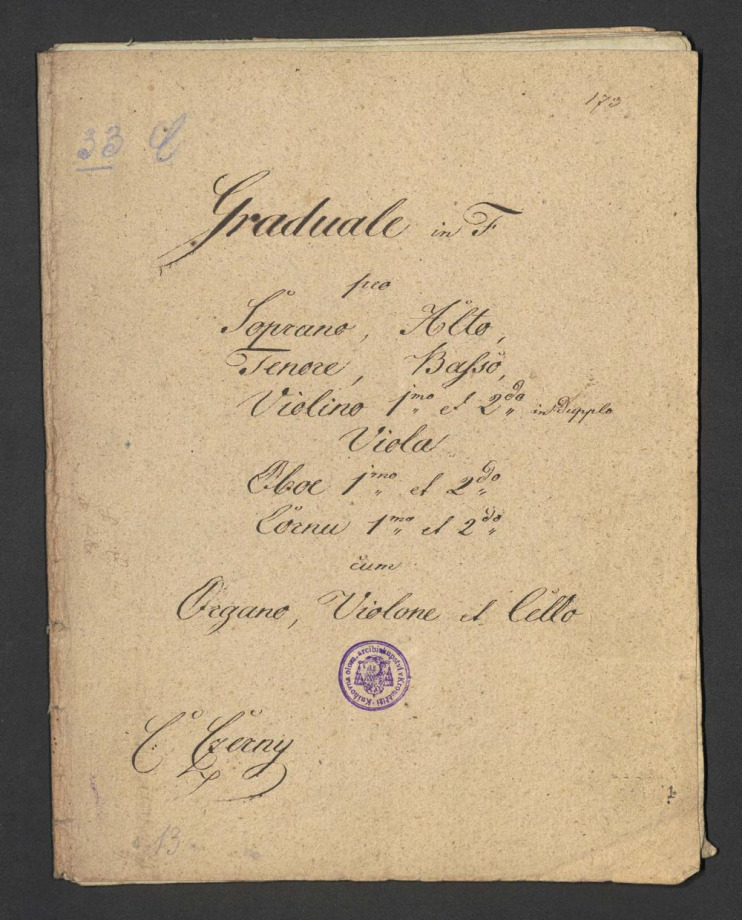 173
33 C
Graduale in F
pro
Soprano, Alto,
Tenore, Basso,
Violino 1mo et 2do in Dupplo
Viola
Oboe 1mo et 2do
Cornu 1mo et 2do
cum
Organo, Violone et Cello
Knihovna olom. arcibiskupství v Kroměříži
C. Czerny
1
13